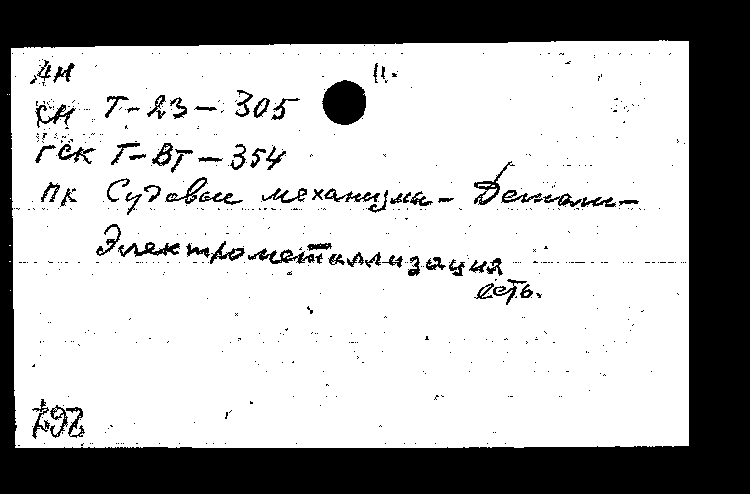 АН II.
СН Т-23-305
ГСК Т-ВТ-354
ПК Судовые механизмы - Детали -
Электрометаллизация
есть.